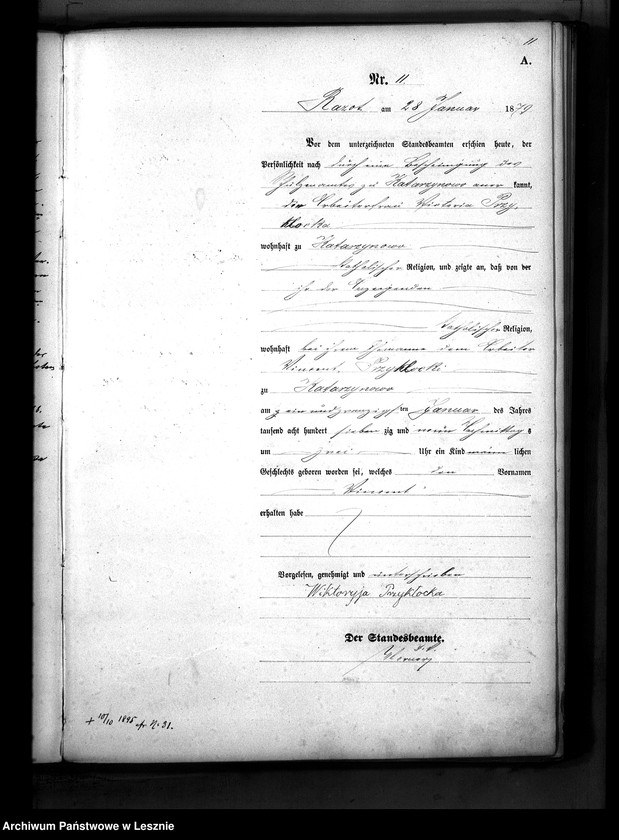 11
A.
Nr. 11
Razot am 28 Januar 1879
Vor dem unterzeichneten Standesbeamten erschien heute, der
Persönlichkeit nach durch eine Bescheinigung des
Schulzenamtes zu Katarzynowo aner kannt,
die Arbeiterfrau Victoria Przy
klocka
wohnhaft zu Katarzynowo
katholischer Religion, und zeigte an, daß von der
katholischer Religion,
wohnhaft bei ihrem Ehemanne dem Arbeiter
Vincent Przyklocki
zu Katarzynowo
am ein und zwanzigsten Januar des Jahres
tausend acht hundert sieben zig und neun Nachmittags
um zwei Uhr ein Kind männ lichen
Geschlechts geboren worden sei, welches den Vornamen
Vincent
erhalten habe
Vorgelesen, genehmigt und unterschrieben
Wiktoryja Przykłocka
Der Standesbeamte.
+ 10/10 1895 cfr. N. 31.
Archiwum Państwowe w Lesznie